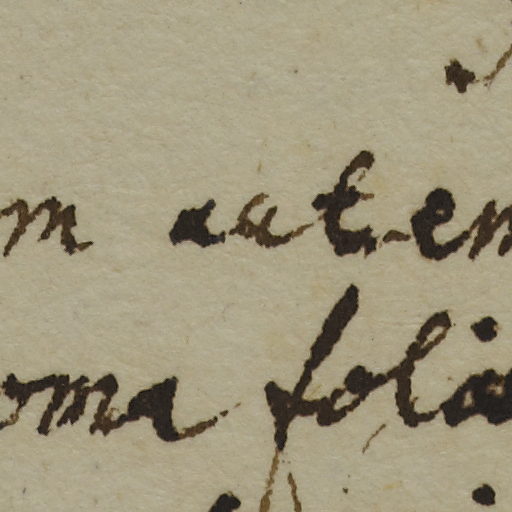 m autem
oma folia